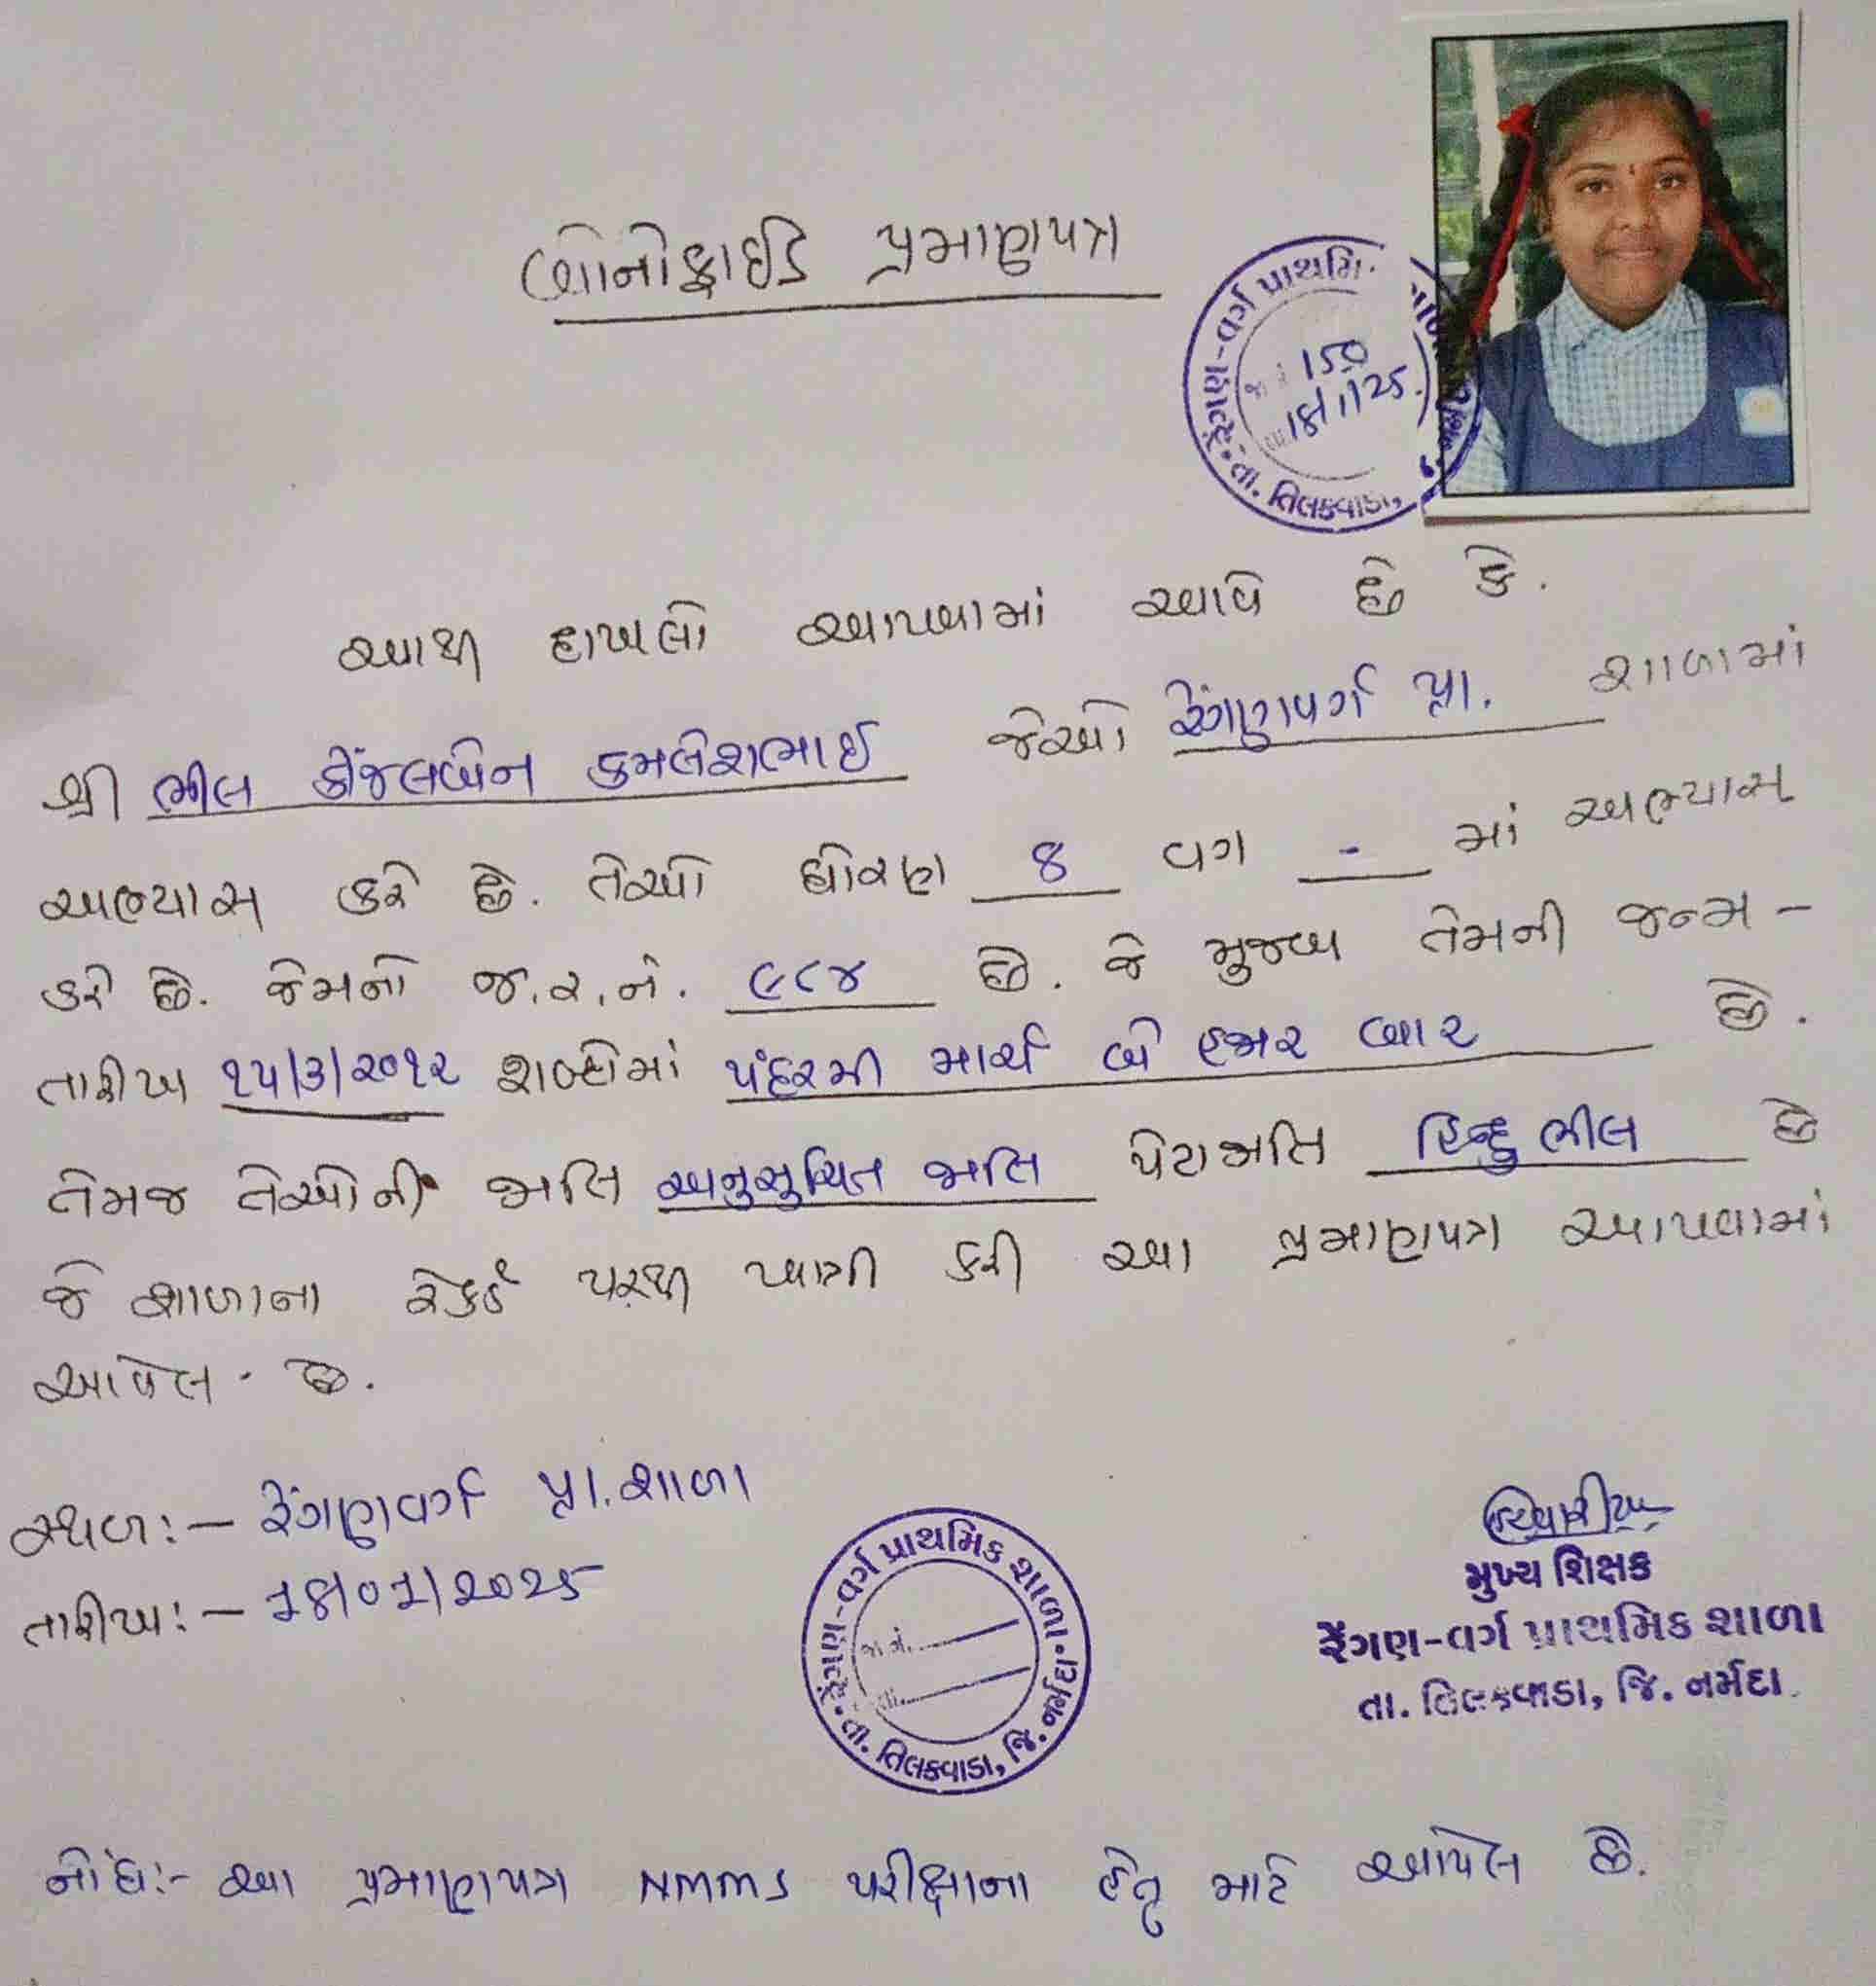 બોનોફાઈડ પ્રમાણપત્ર
રેંગણ-વર્ગ પ્રાથમિ
150
18/1/25
તા. તિલકવાડા,
આથી દાખલો આપવામાં આવે છે કે.
શ્રી ભીલ કોંજલબેન કમલેશભાઈ જેઓ રેંગણવર્ગ પ્રા. શાળામાં
અભ્યાસ કરે છે. તેઓ ધોરણ 8 વર્ગ - માં અભ્યાસ
કરે છે. જેમનો જ.ર.નં. ૯૮૪ છે. જે મુજબ તેમની જન્મ -
તારીખ ૧૫/3/૨૦૧૨ શબ્દોમાં પંદરમી માર્ચ બે હજાર બાર છે.
તેમજ તેઓની જાતિ અનુસુચિત જાતિ પેટાજાતિ હિન્દુ ભીલ છે
જે શાળાના રેકર્ડ પરથી ખાત્રી કરી આ પ્રમાણપત્ર આપવામાં
આવેલ છે.
સ્થળ:- રેંગણવર્ગ પ્રા.શાળા
તારીખ:- 18/01/2025
રેંગણ-વર્ગ પ્રાથમિક શાળા
જા.નં.
તા.
તા. તિલકવાડા, જિ. નર્મદા
મુખ્ય શિક્ષક
રેંગણ-વર્ગ પ્રાથમિક શાળા
તા. તિલકવાડા, જિ. નર્મદા
નોંધ:- આ પ્રમાણપત્ર NMMS પરીક્ષાના હેતુ માટે આપેલ છે.